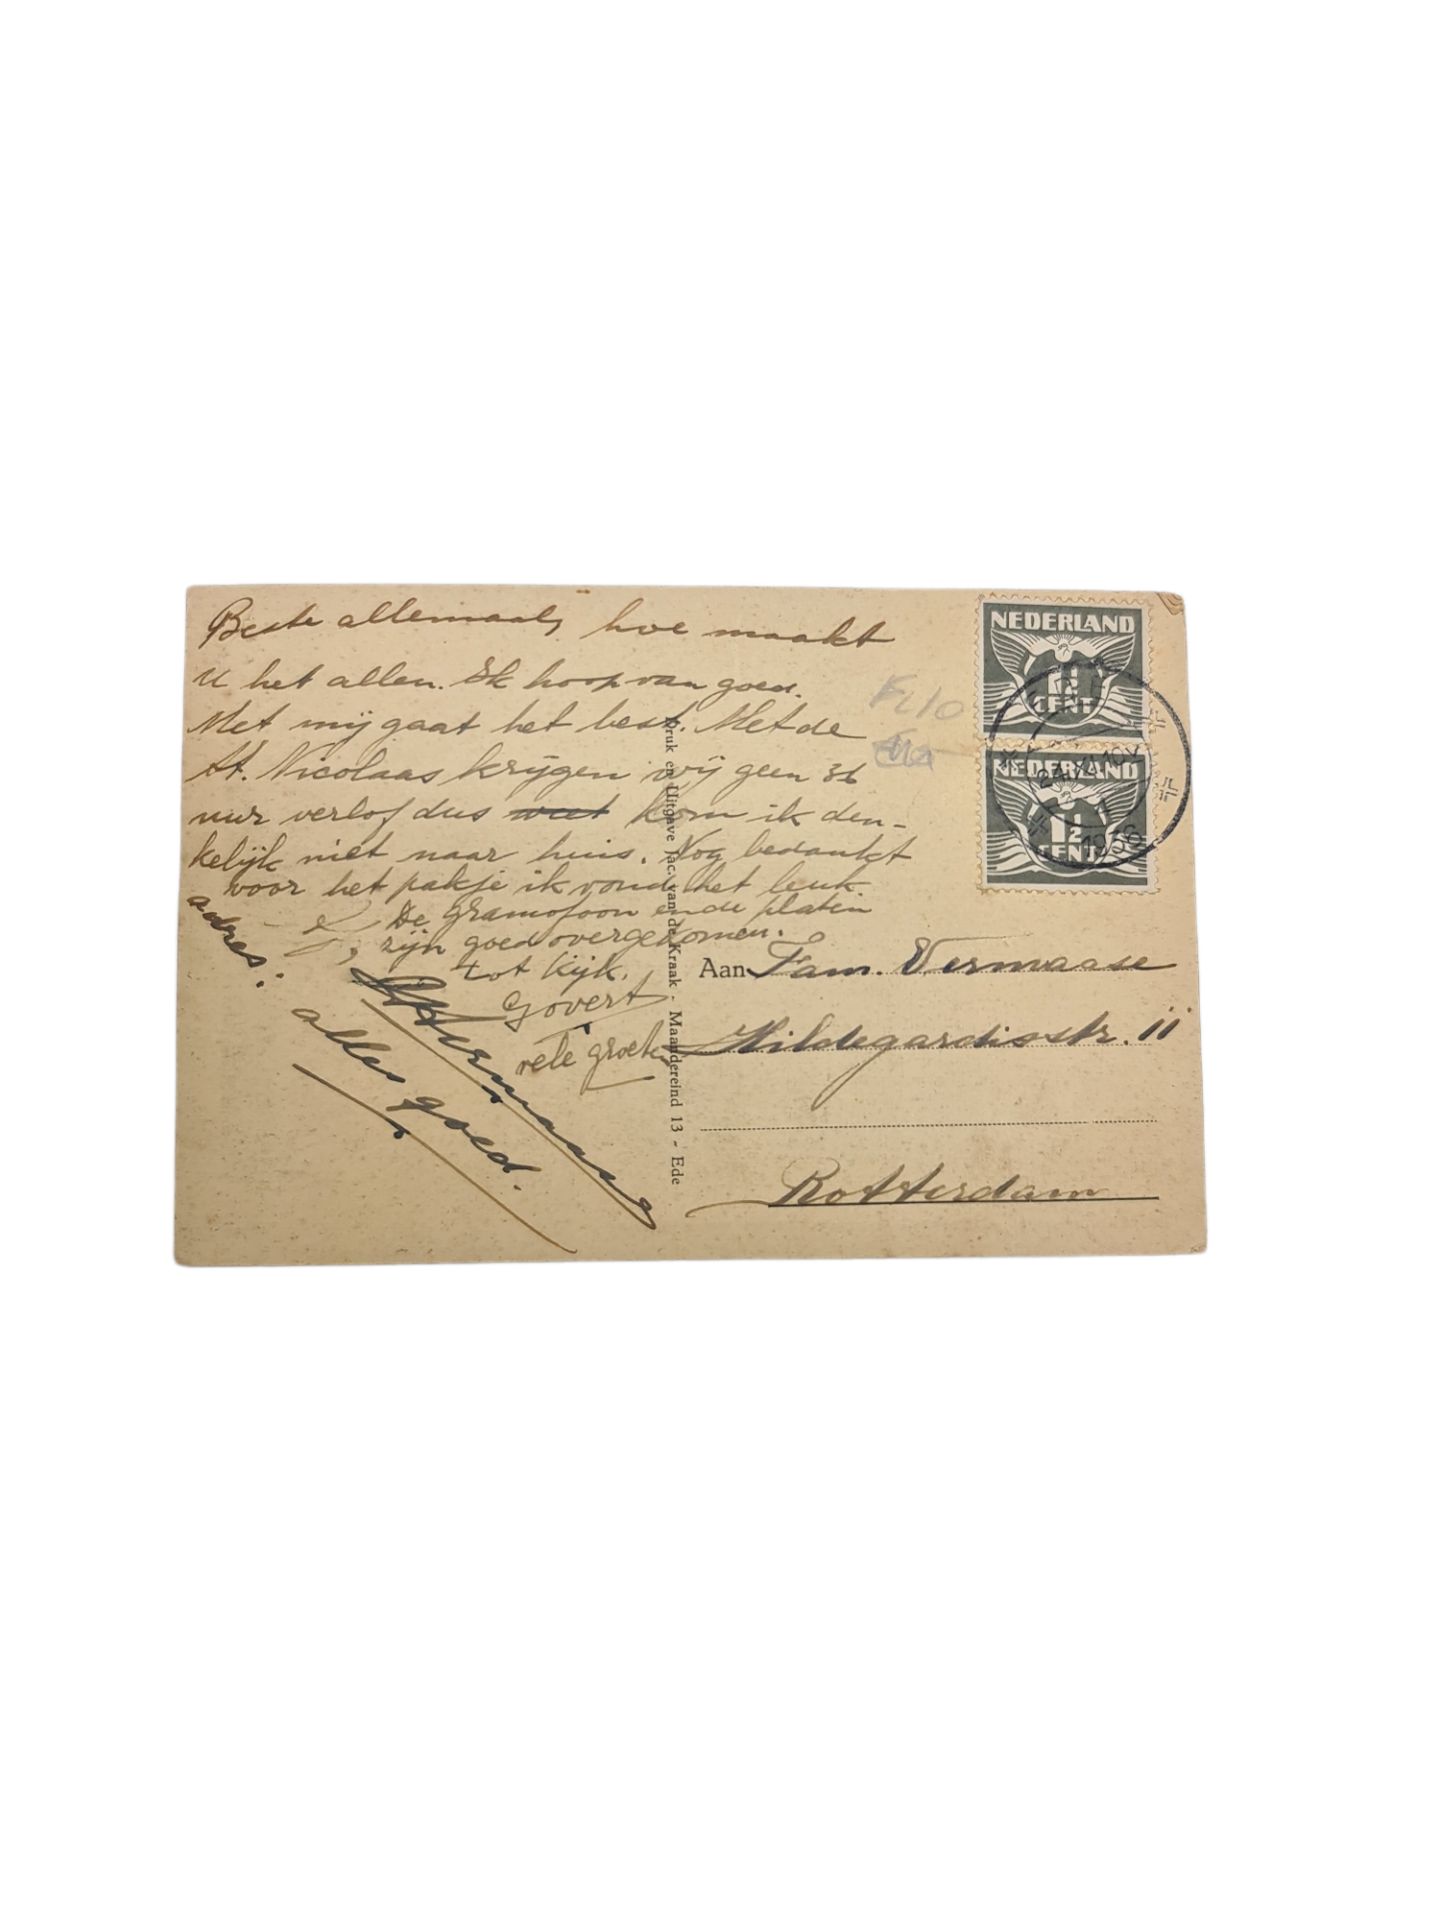 Beste allemaal, hoe maakt
u het allen. Ik hoop van goed.
Met mij gaat het best. Met de
St. Nicolaas krijgen wij geen 36
uur verlof dus weet kom ik den-
kelijk niet naar huis. Nog bedankt
voor het pakje ik vond het leuk.
De gramofoon en de platen
zijn goed overgekomen.
tot kijk.
Govert
vele groeten
adres:
alles goed.
Druk en Uitgave Jac. van de Kraak - Maandereind 13 - Ede
NEDERLAND
1½
CENT
NEDERLAND
1½
CENT
1936
Aan Fam. Vermaase
Hildegardisstr. 11
Rotterdam